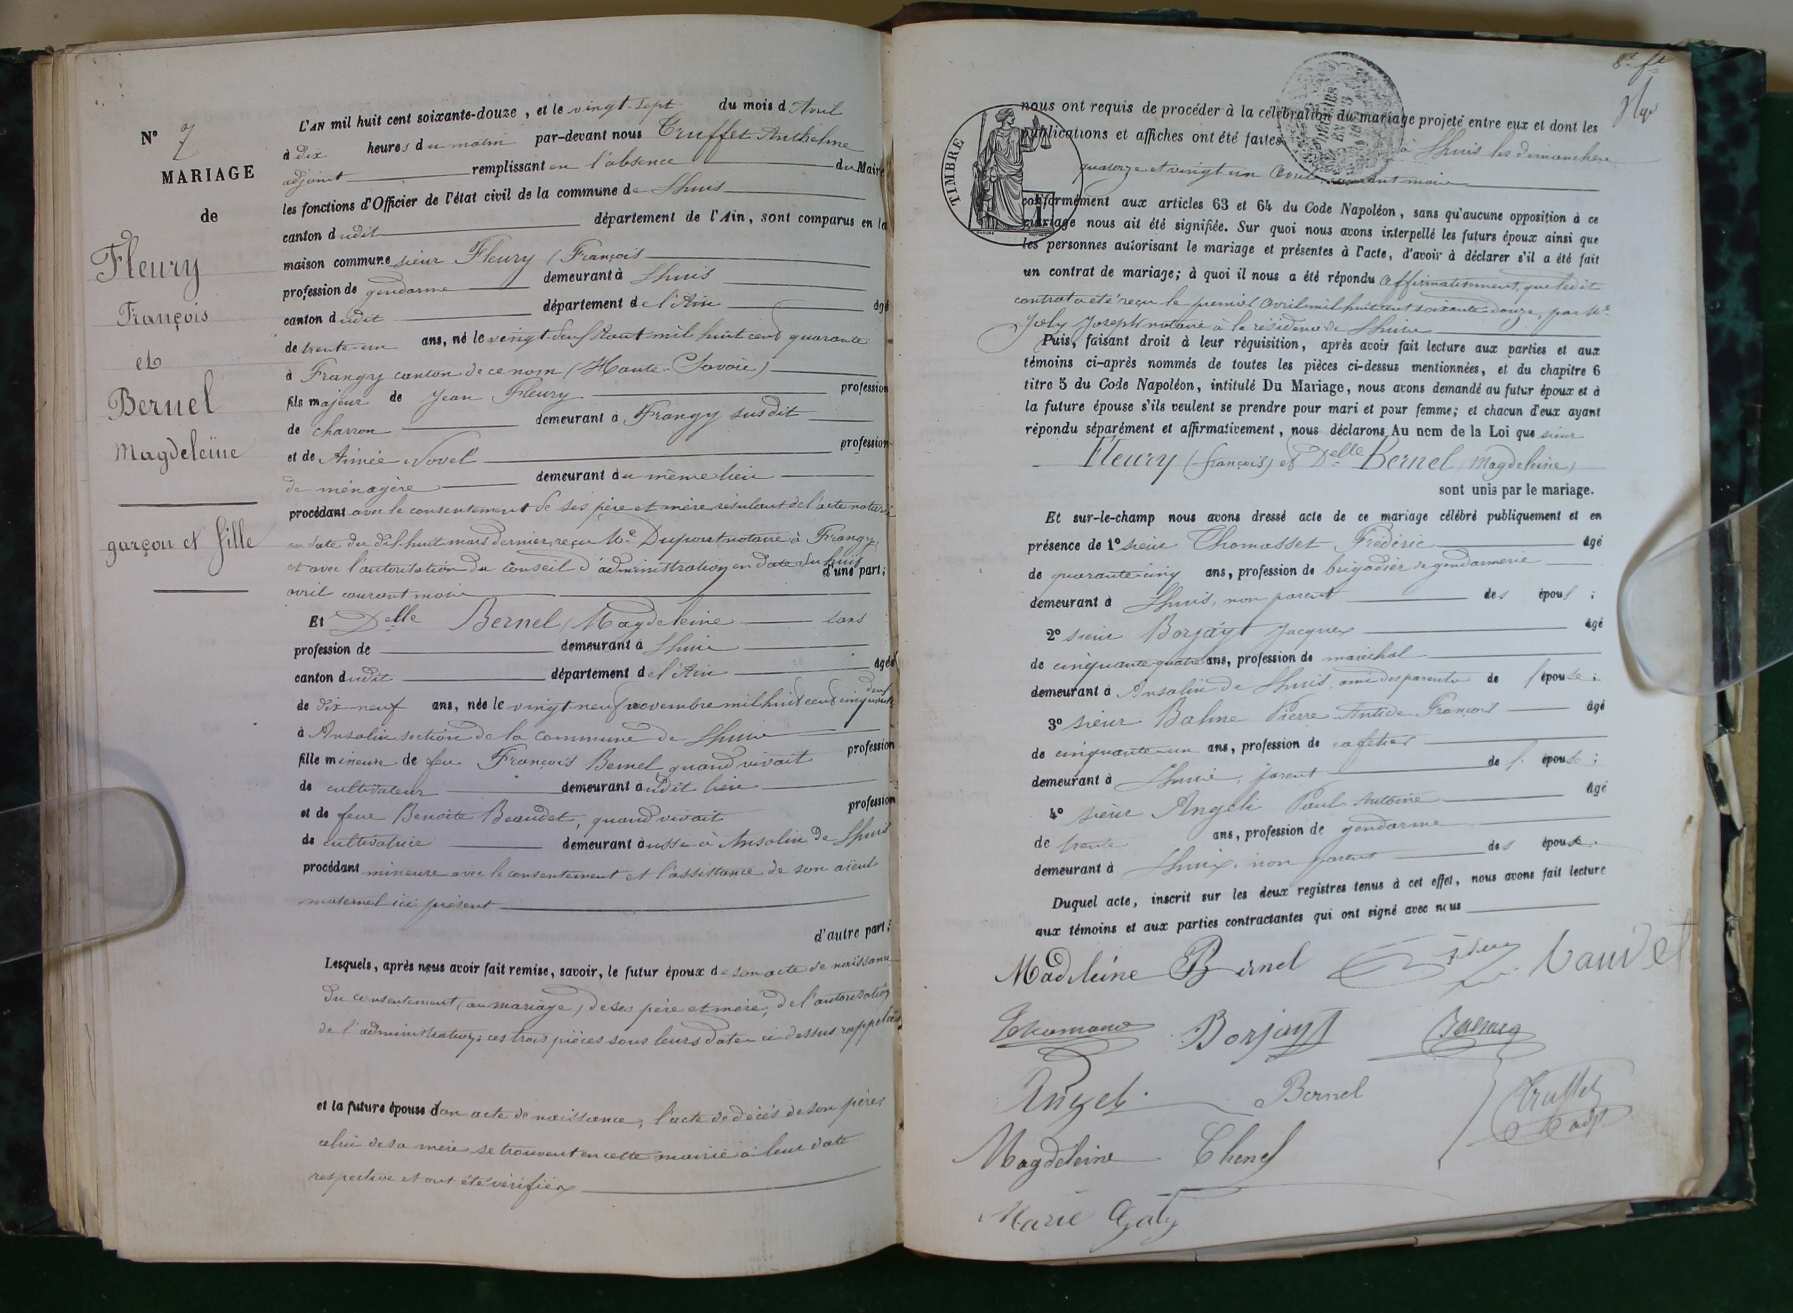 N° 7
MARIAGE
de
Fleury
François
et
Bernel
Magdeleine
garçon et fille
L'AN mil huit cent soixante-douze, et le vingt-sept du mois d'Avril
à dix heures du matin par-devant nous Truffet Anthelme
adjoint remplissant en l'absence du Maire
les fonctions d'Officier de l'état civil de la commune de Lhuis
canton dudit département de l'Ain, sont comparus en la
maison commune sieur Fleury (François
profession de gendarme demeurant à Lhuis
canton dudit département de l'Ain âgé
de trente-un ans, né le vingt-deux Aout mil huit cent quarante
à Frangy canton de ce nom (Haute-Savoie)
fils majeur de Jean Fleury profession
de charron demeurant à Frangy susdit
et de Aimée Novel profession
de ménagère demeurant au même lieu
procédant avec le consentement de ses père et mère résultant de l'acte notarié
en date du dix-huit mars dernier, reçu Me Dupont notaire à Frangy,
et avec l'autorisation du conseil d'administration en date du huit
avril courant mois d'une part;
Et Delle Bernel Magdeleine sans
profession de demeurant à Lhuis
canton dudit département de l'Ain âgée
de dix-neuf ans, née le vingt neuf novembre mil huit cent cinquante deux
à Ansolin section de la commune de Lhuis
fille mineure de feu François Bernel quand vivait profession
de cultivateur demeurant audit lieu
et de feue Benoite Beaudet, quand vivait profession
de cultivatrice demeurant aussi à Ansolin de Lhuis
procédant mineure avec le consentement et l'assistance de son aïeul
maternel ici présent
d'autre part;
Lesquels, après nous avoir fait remise, savoir, le futur époux de son acte de naissance
du consentement, au mariage, de ses père et mère, de l'autorisation
de l'administration; ces trois pièces sous leurs dates ci-dessus rappelées
et la future épouse d'un acte de naissance, l'acte de décès de son père,
celui de sa mère se trouvent en cette mairie à leur date
respective et ont été vérifiés
8e ft
TIMBRE
nous ont requis de procéder à la célébration du mariage projeté entre eux et dont les
publications et affiches ont été faites à Lhuis les dimanches
quatorze et vingt un Avril courant mois
conformément aux articles 63 et 64 du Code Napoléon, sans qu'aucune opposition à ce
mariage nous ait été signifiée. Sur quoi nous avons interpellé les futurs époux ainsi que
les personnes autorisant le mariage et présentes à l'acte, d'avoir à déclarer s'il a été fait
un contrat de mariage; à quoi il nous a été répondu affirmativement, que ledit
contrat a été reçu le premier Avril mil huit cent soixante douze, par Me
Joly Joseph notaire à la résidence de Lhuis
Puis, faisant droit à leur réquisition, après avoir fait lecture aux parties et aux
témoins ci-après nommés de toutes les pièces ci-dessus mentionnées, et du chapitre 6
titre 5 du Code Napoléon, intitulé Du Mariage, nous avons demandé au futur époux et à
la future épouse s'ils veulent se prendre pour mari et pour femme; et chacun d'eux ayant
répondu séparément et affirmativement, nous déclarons Au nom de la Loi que sieur
Fleury (françois) et Delle Bernel (Magdeleine)
sont unis par le mariage.
Et sur-le-champ nous avons dressé acte de ce mariage célébré publiquement et en
présence de 1° sieur Thomasset Frédéric âgé
de quarante cinq ans, profession de brigadier de gendarmerie
demeurant à Lhuis, non parent des époux;
2° sieur Borjayt Jacques âgé
de cinquante-quatre ans, profession de maréchal
demeurant à Ansolin de Lhuis, ami des parents de l'épouse;
3° sieur Balme Pierre Antide François âgé
de cinquante-un ans, profession de cafetier
demeurant à Lhuis, parent de l'épouse;
4° sieur Angeli Paul Antoine âgé
de trente ans, profession de gendarme
demeurant à Lhuis, non parent des époux.
Duquel acte, inscrit sur les deux registres tenus à cet effet, nous avons fait lecture
aux témoins et aux parties contractantes qui ont signé avec nous
Madeleine Bernel
Borjayt
Angeli Bernel
Truffet adjt
Magdeleine
Marie